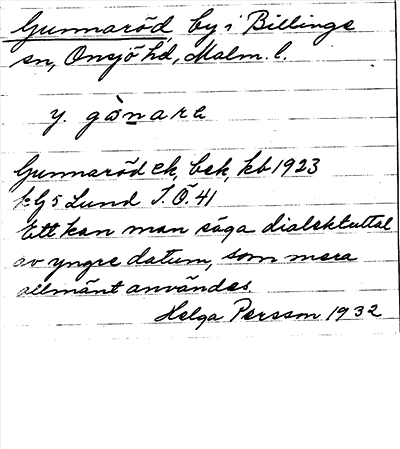 Gunnaröd, by i Billinge
sn, Onsjö hd, Malm. l.
y. gònara
Gunnaröd ek, bek, kb 1923
G 5 Lund I. Ö. 41
Ett kan man säga dialektuttal
av yngre datum, som mera
allmänt användes.
Helga Persson 1932